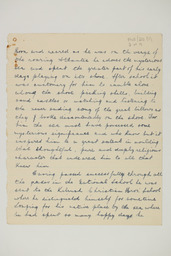 born and reared as he was on the verge of
the roaring Atlantic he loved the mysterious
sea and spent the greater part of his early
days playing on its shore. After school it
was customary for him to ramble alone
along the shore picking shells, building
sand castles or watching and listening to
the never ending song of the great billows as
they broke incessantly on the shore. For
him the sea must have possessed some
mysterious significance and who knows but it
inspired him to a great extent in moulding
that thoughtful, pure and deeply religious
character that endeared him to all that
knew him.
Having passed successfully through all
the grades in the National School he was
sent to the Christian Bros School
where he distinguished himself for
longing for his native place by the sea where
he had spent so many happy days he